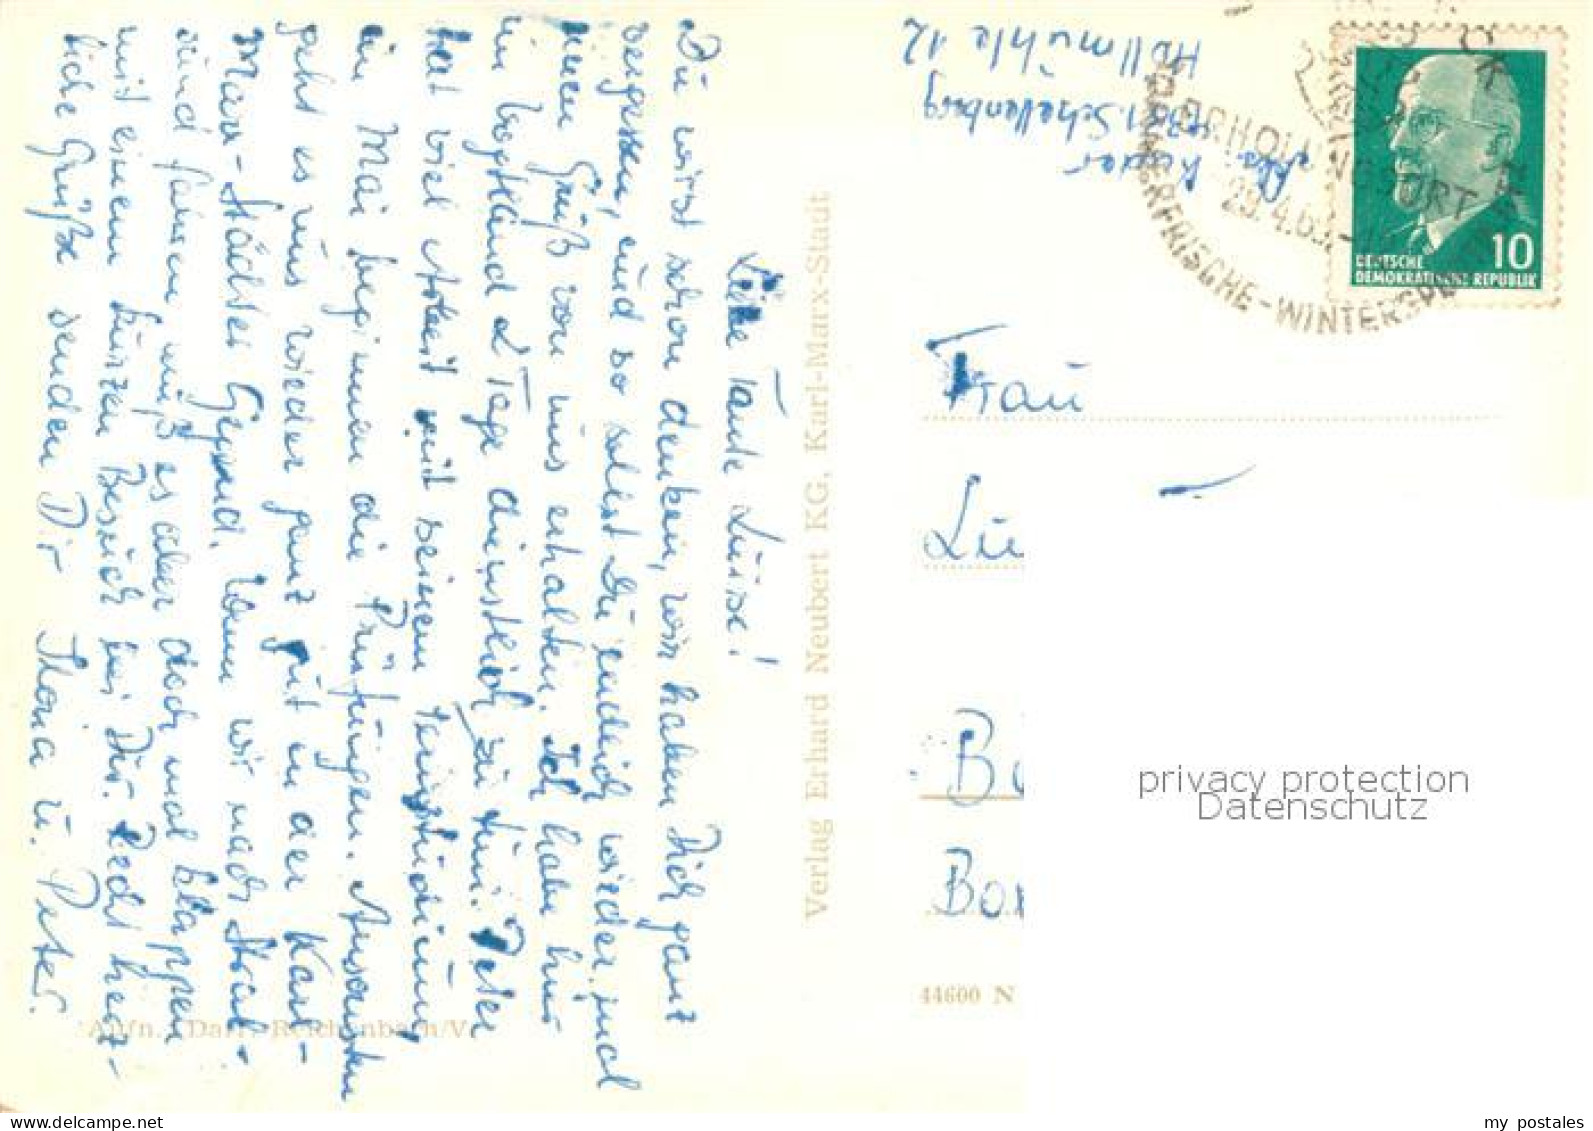 Liebe Tante Luise!
Du wirst schon denken, wir haben Dich ganz
vergessen, und so sollst Du endlich wieder mal
einen Gruß von uns erhalten. Ich habe hier
im Vogtland 2 Tage dienstlich zu tun. Peter
hat viel Arbeit mit seinem Fernstudium,
im Mai beginnen die Prüfungen. Ansonsten
geht es uns wieder ganz gut in der Karl-
Marx-Städter Gegend. Wenn wir nach Stral-
sund fahren, muß es aber doch mal klappen
mit einem kurzen Besuch bei Dir. Recht herz-
liche Grüße senden Dir
u. Peter.
Aufn.: Darr, Reichenbach/V.
Verlag Erhard Neubert KG, Karl-Marx-Stadt
Abs.
9381 Schellenberg
Hollmühle 12
ERHOLUNGSORT
29.4.63
SOMMERFRISCHE-WINTERSPORT
10
DEUTSCHE
DEMOKRATISCHE REPUBLIK
Frau
Lu
B
Bor
44600 N
privacy protection
Datenschutz
my postales